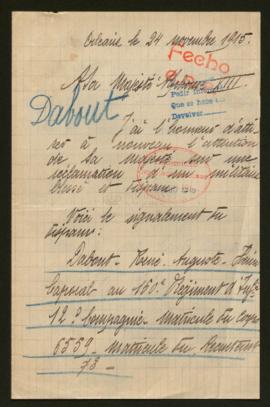 Orléans le 24 novembre 1915.
Fecho
A Sa Majesté Alphonse XIII.
Pedir
Que se hace
Devolver
Dabout
J'ai l'honneur d'atti-
rer à nouveau l'attention
de Sa Majesté sur une
réclamation un militaire
blessé et disparu.
Voici le signalement du
disparu:
Dabout - René - Auguste -
Caporal au 150e Régiment d'Inf.ie
12e Compagnie - matricule du corps
6559 - matricule du Recrutement
78 -